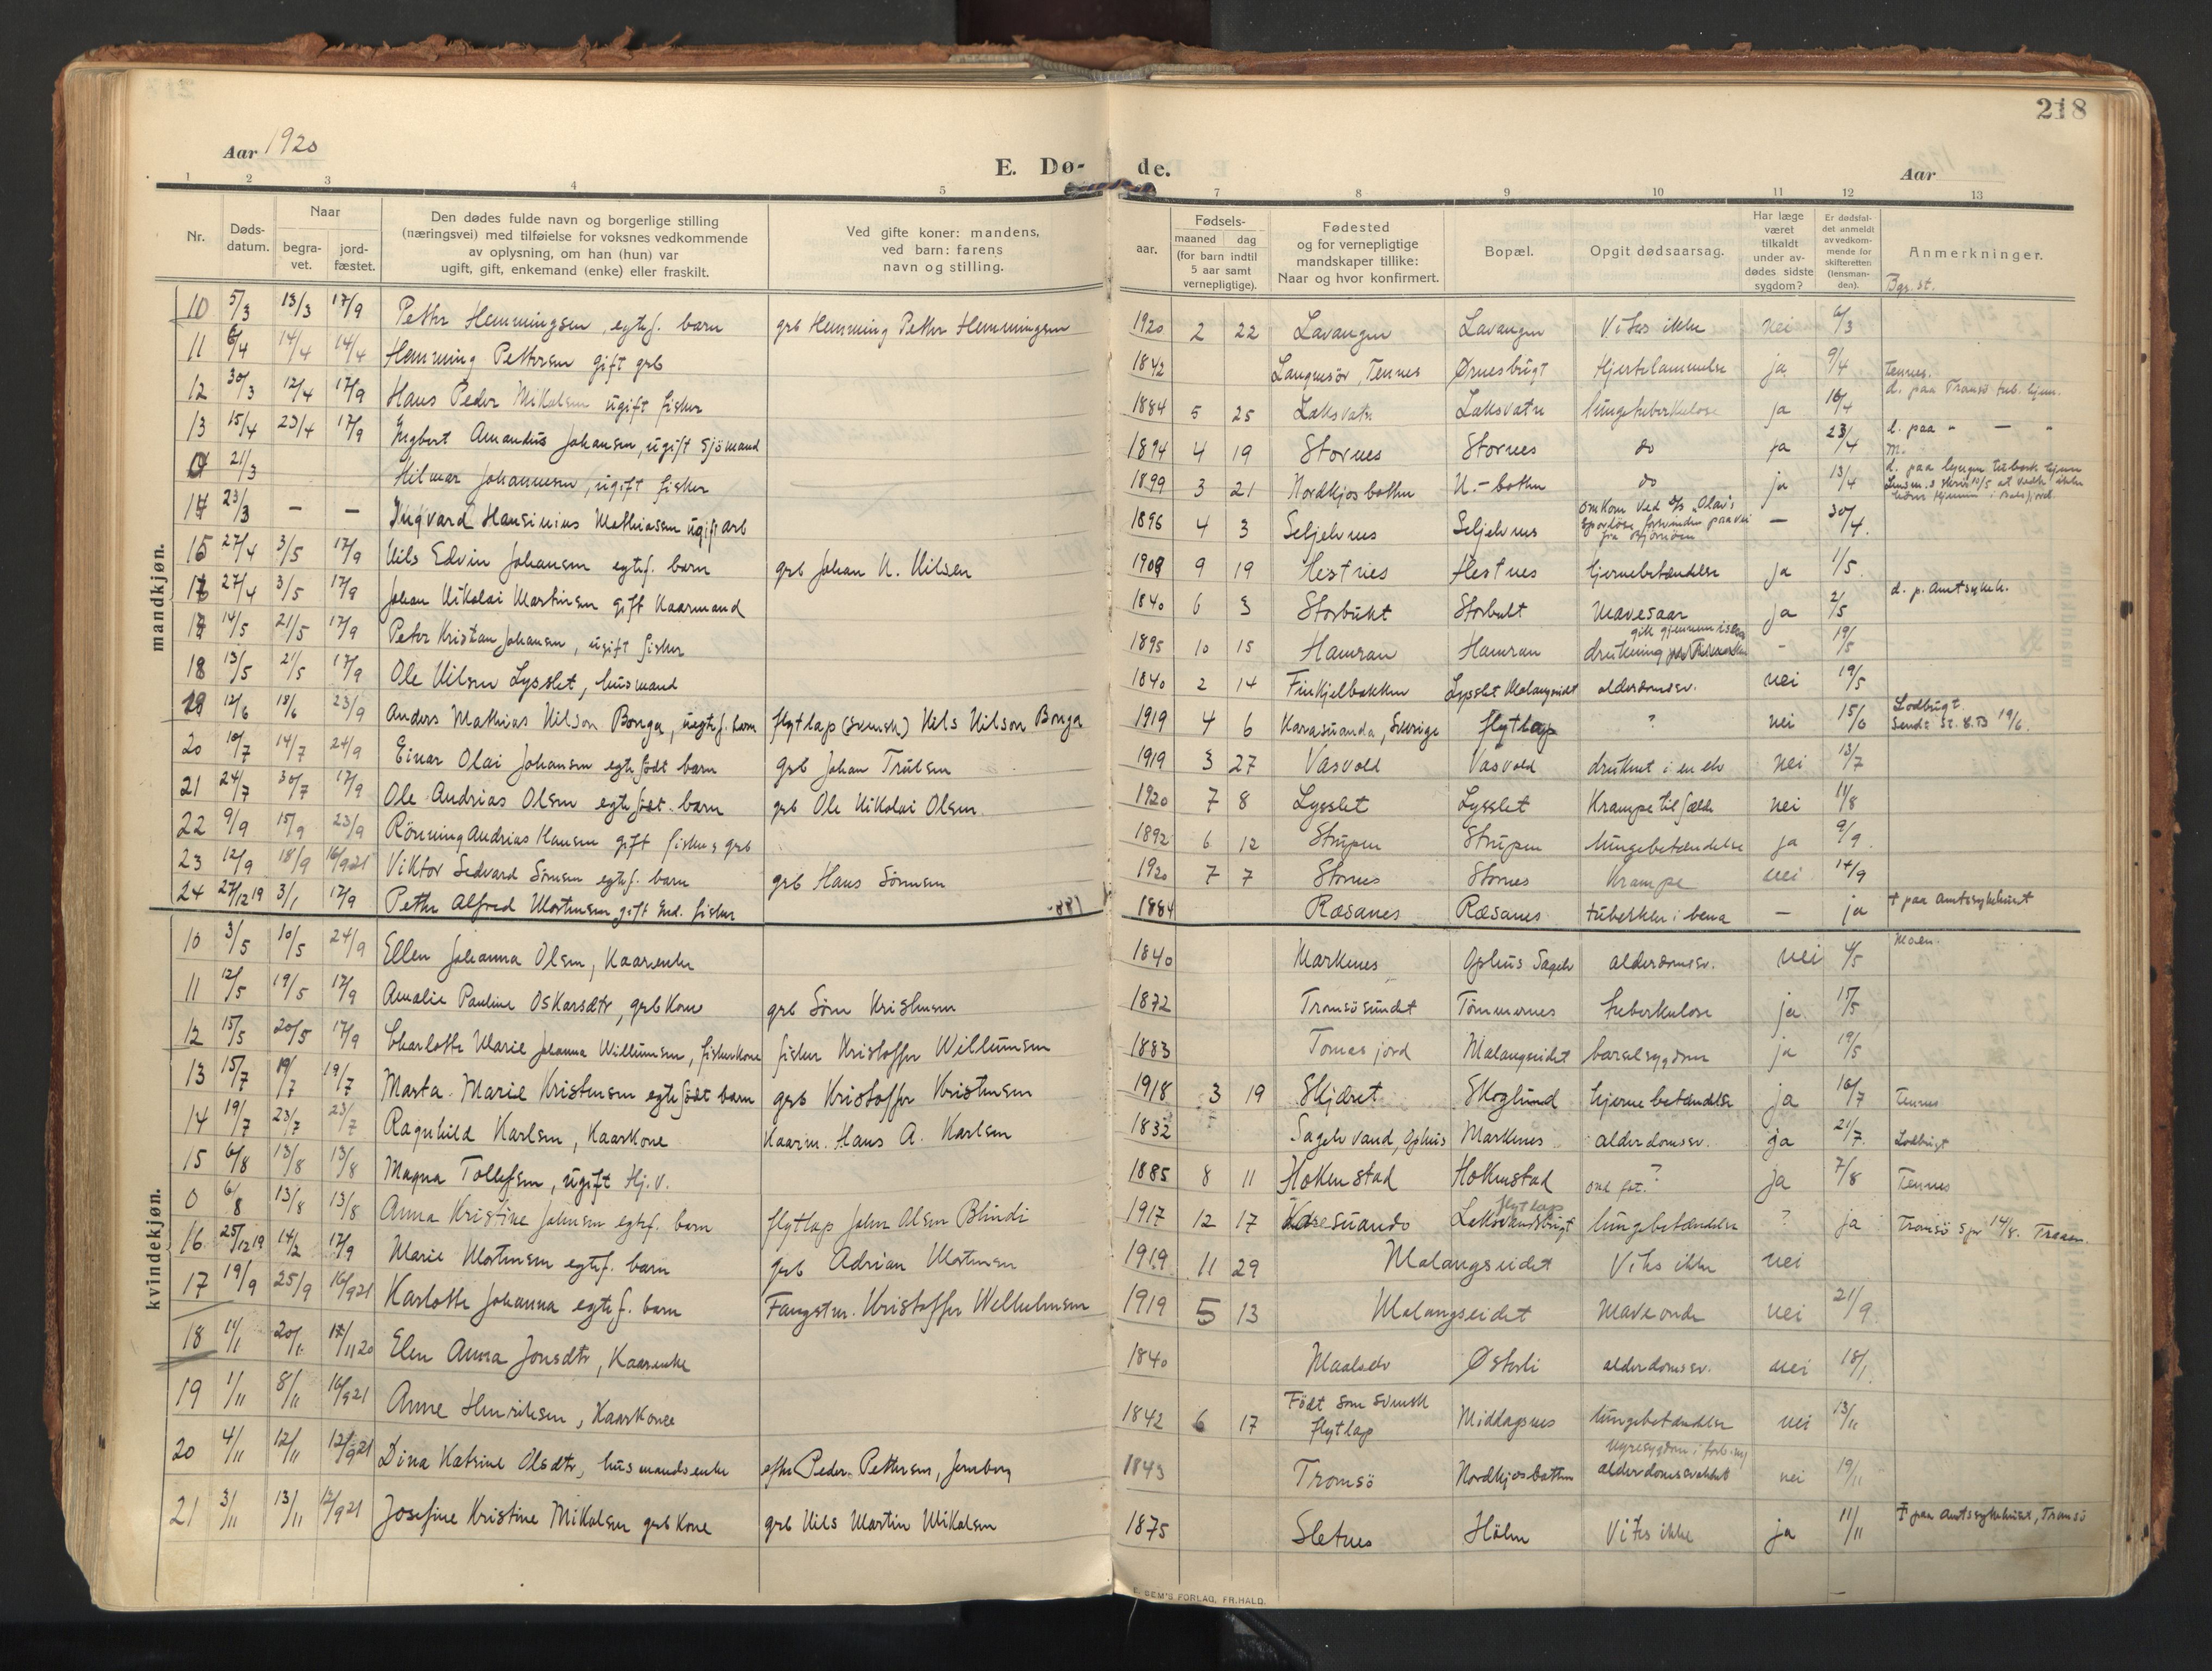 218
Aar 1920
E. Dø- de.
Aar
1 2 3 4 5 7 8 9 10 11 12 13
Nr.
Døds-
datum.
Naar
begra-
vet.
jord-
fæstet.
Den dødes fulde navn og borgerlige stilling
(næringsvei) med tilføielse for voksnes vedkommende
av oplysning, om han (hun) var
ugift, gift, enkemand (enke) eller fraskilt.
Ved gifte koner: mandens,
ved barn: farens
navn og stilling.
aar.
Fødsels-
maaned dag
(for barn indtil
5 aar samt
vernepligtige).
Fødested
og for vernepligtige
mandskaper tillike:
Naar og hvor konfirmert.
Bopæl.
Opgit dødsaarsag.
Har læge
været
tilkaldt
under av-
dødes sidste
sygdom?
Er dødsfal-
det anmeldt
av vedkom-
mende for
skifteretten
(lensman-
den).
Anmerkninger.
Bgr. st.
mandkjøn.
10 5/3 13/3 17/9 Petter Hemmingsen, egtef. barn grb Hemming Petter Hemmingsen 1920 2 22 Lavangen Lavangen Vites ikke nei 6/3
11 6/4 14/4 14/4 Hemming Pettersen gift grb 1842 Langnesör, Tennes Ørnesbugt Hjertelammelse ja 9/4 Tennes.
12 30/3 12/4 17/9 Hans Peder Mikalsen ugift fisker 1884 5 25 Laksvatn Laksvatn lungetuberkulose ja 16/4 d. paa Tromsö tub. hjem.
13 15/4 23/4 17/9 Ingbert Amandus Johansen, ugift sjömand 1894 4 19 Stornes Stornes do ja 23/4 d. paa " — "
21/3 Hilmar Johannesen, ugift fisker 1899 3 21 Nordkjosbotten N.-botten do ja 13/4 d. paa lyngen tuberk. hjem
14 23/3 — — Ingvard Hansinius Mathiassen ugift arb 1896 4 3 Seljelvnes Seljelvnes omkom ved d/s "Olav's sporlöse forsvinden paa vei fra Bjørnøen — 30/4.
15 27/4 3/5 17/9 Nils Edvin Johansen egtef. barn grb Johan N. Nilsen 1909 9 19 Hestnes Hestnes hjernebetændelse ja 1/5.
16 27/4 3/5 17/9 Johan Nikolai Martinsen gift Kaarmand 1840 6 3 Storbukt Storbukt Mavesaar ja 2/5 d. p. Amtssykeh.
17 14/5 21/5 17/9 Peter Kristian Johansen, ugift fisker 1895 10 15 Hamran Hamran drukning gik gjennem isen - 19/5
18 13/5 21/5 17/9 Ole Nilsen Lysslet, husmand 1840 2 14 Finkjelbakken Lysslet Malangseidet alderdomssv. nei 19/5
19 12/6 18/6 23/9 Anders Mathias Nilson Bonga, uegtef. barn flytlap (svensk) Nils Nilson Bonga 1919 4 6 Karasuanda, Sverige flytlap ? nei 15/6 Lodbugt. Sendt St. 8.B 19/6.
20 10/7 14/7 24/9 Einar Olai Johansen egtefödt barn grb Johan Trulsen 1919 3 27 Vasvold Vasvold druknet i en elv nei 13/7
21 24/7 30/7 17/9 Ole Andrias Olsen egtefödt barn grb Ole Nikolai Olsen 1920 7 8 Lysslet Lysslet Krampetilfælde nei 11/8
22 9/9 15/9 23/9 Rönning Andrias Hansen gift fisker & grb 1892 6 12 Strupen Strupen lungebetændelse ja 9/9.
23 12/9 18/9 16/9 21 Viktor Sedvard Sörensen egtef. barn grb Hans Sörensen 1920 7 7 Stornes Stornes Krampe nei 14/9
24 27/12 19 3/1 17/9 Petter Alfred Mortensen gift fisker 1884 Ræsanes Ræsanes tuberkler i bena — ja † paa Amtssykehuset
kvindekjøn.
10 3/5 10/5 24/9 Ellen Johanna Olsen, Kaarenke 1840 Markenes Ophus Sagelv alderdomssv. nei 4/5 Moen.
11 12/5 19/5 17/9 Amalie Pauline Oskarsdtr, grb Kone grb Sören Kristensen 1872 Tromsösundet Tömmernes tuberkulose ja 15/5
12 15/5 20/5 17/9 Charlotte Marie Johanna Willumsen, fiskerkone fisker Kristoffer Willumsen 1883 Tomasjord Malangseidet barselsygdom ja 19/5
13 15/7 19/7 19/7 Marta Marie Kristensen egtefödt barn grb Kristoffer Kristensen 1918 3 19 Skjæret Skoglund hjernebetændelse ja 16/7 Tennes
14 19/7 23/7 23/7 Ragnhild Karlsen, Kaarkone Kaarm. Hans A. Karlsen 1832 Sagelvvand, Ophus Markenes alderdomssv. ja 21/7. Lodbugt
15 6/8 13/8 13/8 Magna Tollefsen, ugift Hj.v. 1885 8 11 Hokenstad Hokenstad ? ja 7/8 Tennes
0 6/8 13/8 13/8 Anna Kristine Johnsen egtef. barn flytlap John Olsen Blindi 1917 12 17 Karesuando flytlap lungebetændelse ? ja Tromsö spr 14/8.
16 25/12 19 14/2 17/9 Marie Mortensen egtef. barn grb Adrian Mortensen 1919 11 29 Malangseidet Vites ikke nei
17 19/9 25/9 16/9 21 Karlotte Johanna egtef. barn Fangstm. Kristoffer Welhelmsen 1919 5 13 Malangseidet Maveonde nei 21/9.
18 11/1 20/1 17/11 20 Elen Anna Jonsdtr, Kaarenke 1840 Maalselv Østerli alderdomssv. nei 18/1.
19 1/11 8/11 16/9 21 Anne Henriksen, Kaarkone 1842 6 17 Födt som svensk flytlap Middagsnes lungebetændelse nei 13/11
20 4/11 12/11 12/9 21 Dina Katrine Olsdtr, husmandsenke efter Peder Pettersen, Jernberg 1843 Tromsö Nordkjosbotten Nyresygdom i forb. m. alderdomssvakhet nei 19/11
21 3/11 13/11 12/9 21 Josefine Kristine Mikalsen grb kone grb Nils Martin Mikalsen 1875 Sletnes Holm Vites ikke ja 11/11 † paa Amtssykehuset, Tromsö
E. SEM'S FORLAG, FR.HALD.